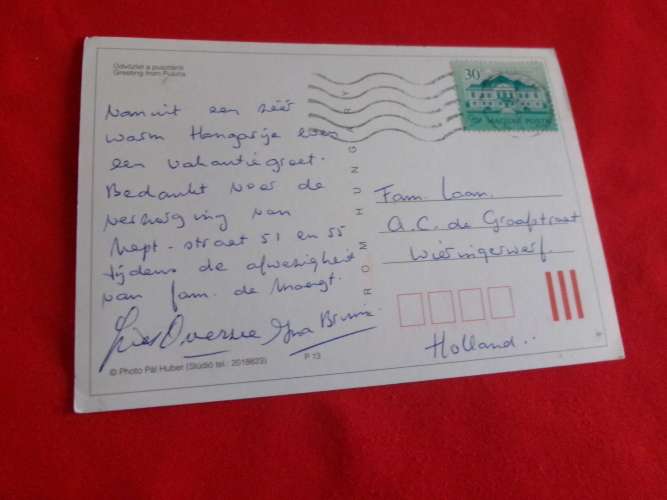 Üdvözlet a pusztáról
Greeting from Puszta
Vanuit een zéér
warm Hongarije even
een vakantiegroet.
Bedankt voor de
verzorging van
Nept.-straat 51 en 55
tijdens de afwezigheid
van fam. de Knegt.
FROM HUNGARY
30
MAGYAR POSTA
Fam. Laan.
A.C. de Graafstraat
Wieringerwerf.
Holland..
© Photo Pál Huber (Stúdió tel.: 2018823)
P 13